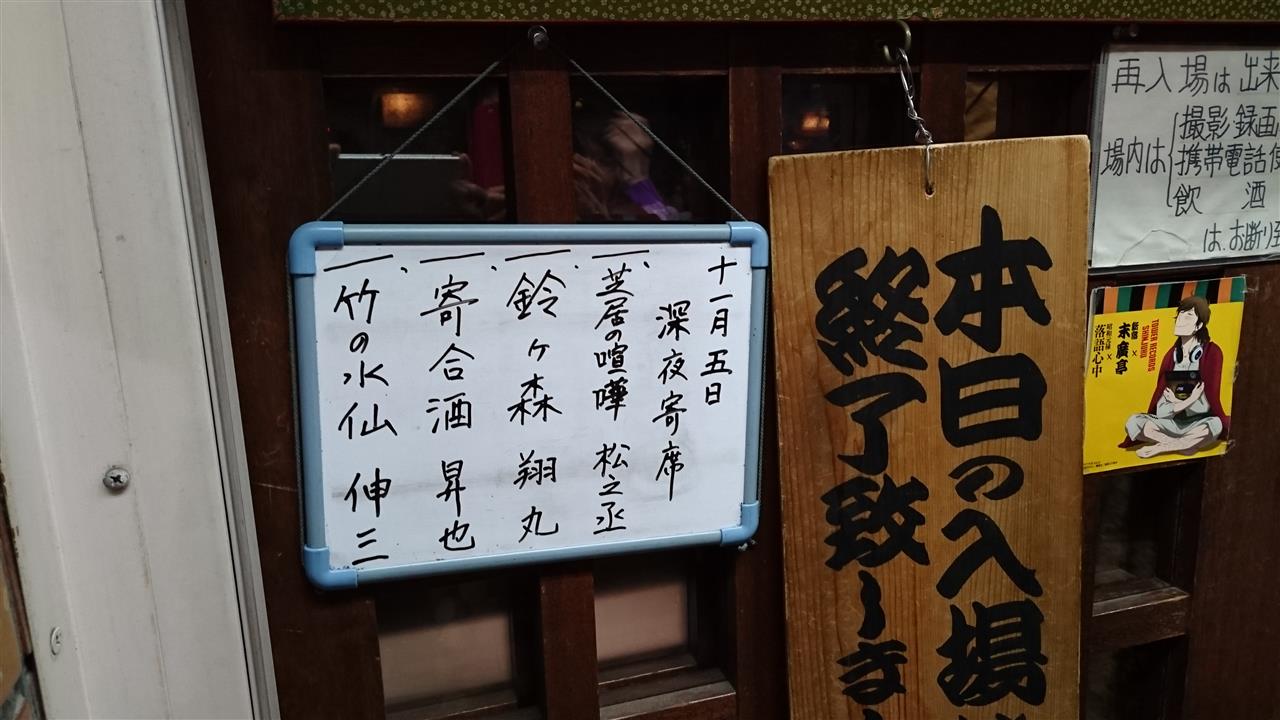 十一月五日
深夜寄席
一、芝居の喧嘩 松之丞
一、鈴ヶ森 翔丸
一、寄合酒 昇也
一、竹の水仙 伸三
本日の入場
終了致しま
再入場は出来
場内は
撮影録画
携帯電話使
飲酒
は、お断り至
TOWER RECORDS
SHINJUKU
×
新宿
末廣亭
×
昭和元禄
落語心中